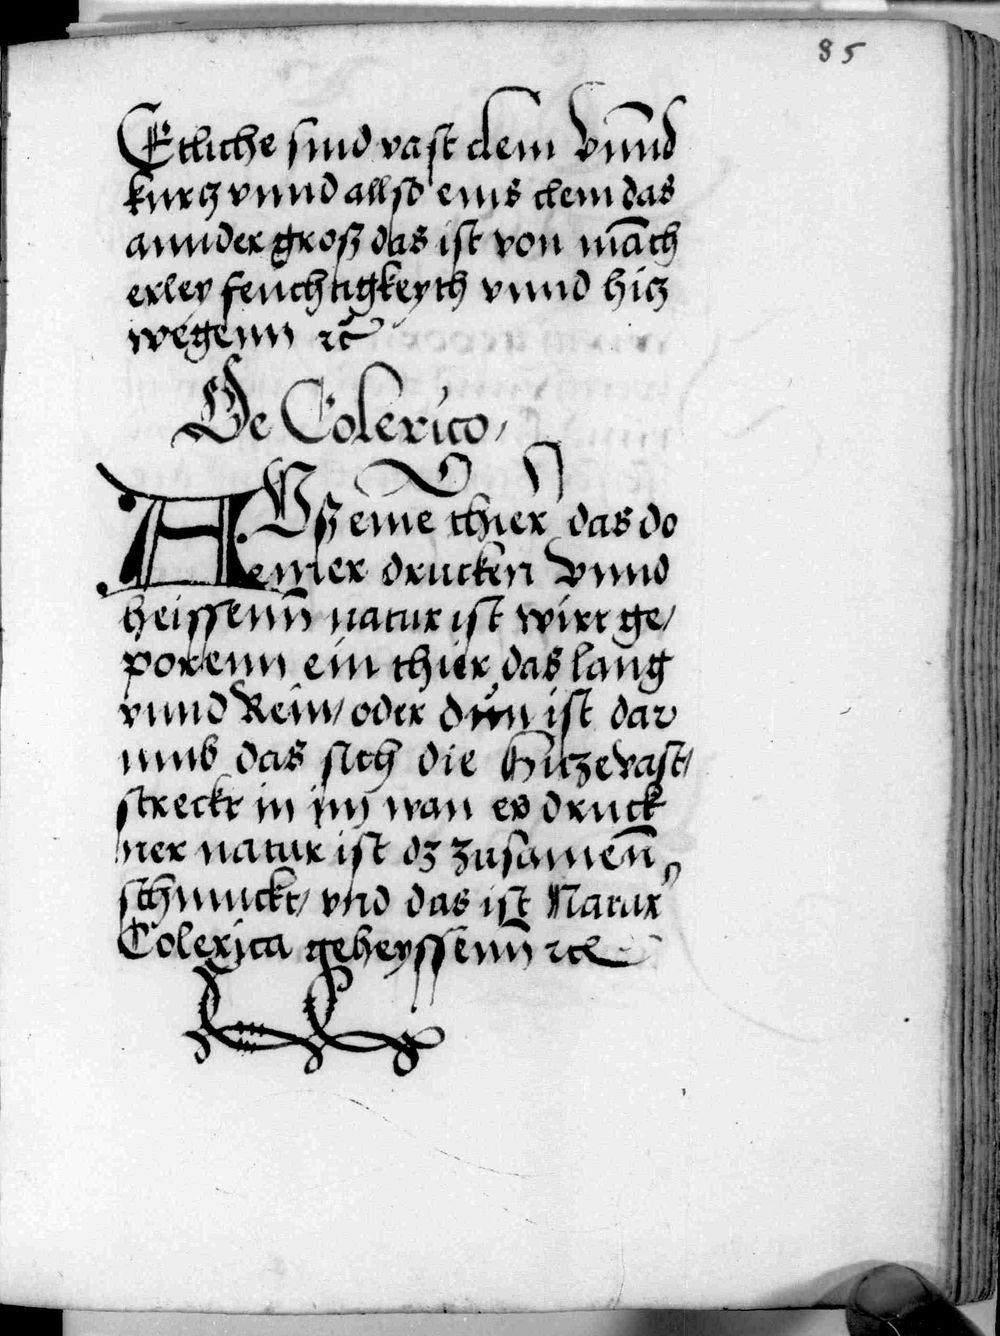 85
Etliche sind vast clein Vnnd
kurcz vnnd allso eins clein das
annder groß das ist von mãch
erley feuchtigkeyth vnnd hicz
wegenn ꝛc̃
De Colerico,
AVß eine thier das do
einer drucken Vnnd
heissenn̄ natur ist wirt ge,
porenn ein thier das lang
vnnd Rein, oder dün ist dar
vmb das sich die Hitze vast,
streckt in im wan er druck
ner natur ist dz zusamen̄
schmuckt, vnd das ist Natur
Colerica geheyssenn̄ ꝛc